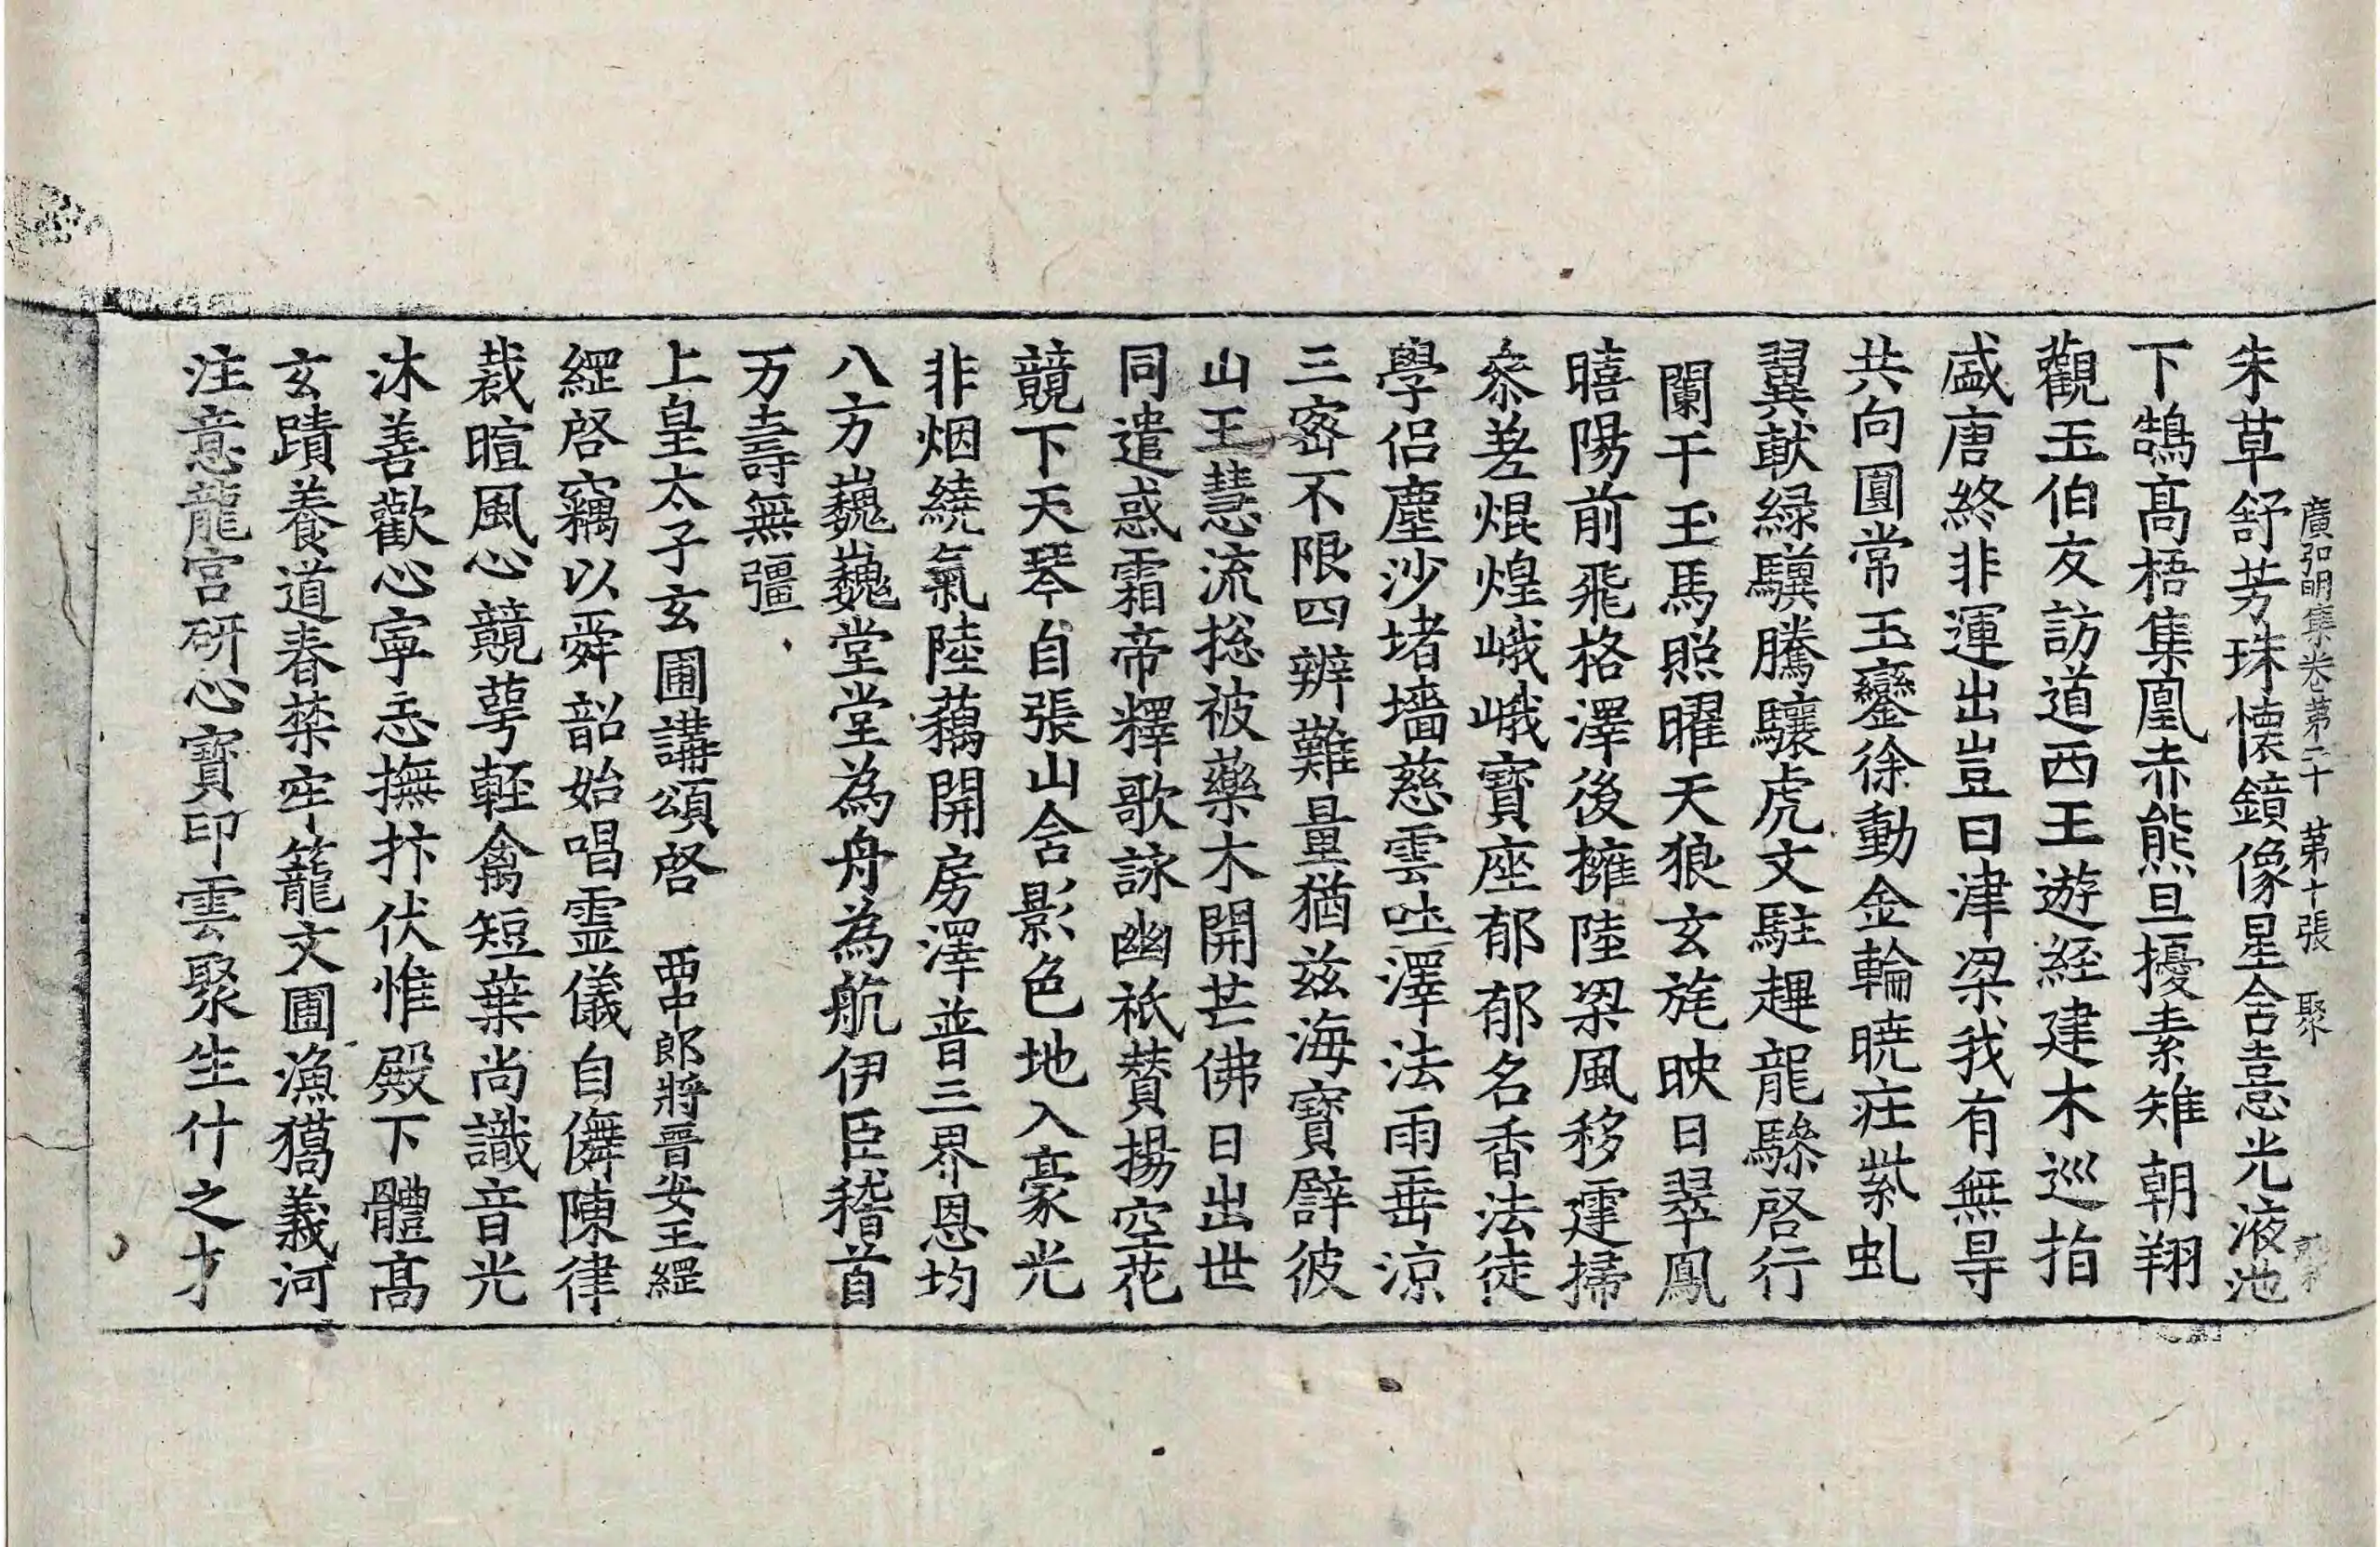 廣弘明集卷第二十 第十張 聚
朱草舒芳珠懷鏡像星舍憙光液池
下鵠髙梧集凰赤熊旦擾素雉朝翔
觀玉伯友訪道西王遊經建木巡指
盛唐終非運出豈曰津梁我有無㝵
共向圓常玉鑾徐動金輪曉症紫虬
翼獻緑驥騰驤虎文駐趕龍騄啓行
闌干玉馬照曜天狼玄旄映日翠鳳
曦陽前飛格澤後擁陸梁風移霆掃
叅差焜煌峨峨寳座郁郁名香法徒
學侣塵沙堵墻慈雲吐澤法雨垂涼
三宻不限四辨難量猶兹海寳譬彼
山王慧流捴被藥木開芒佛日出世
同遣惑霜帝釋歌詠幽祇賛揚空花
競下天琴自張山舍影色地入豪光
非烟繞氣陸藕開房澤普三界恩均
八方巍巍堂堂為舟為航伊臣稽首
万壽無彊
上皇太子玄圃講頌啓 西中郎將晉安王綱
綱啓竊以舜韶始唱靈儀自儛陳律
裁暄風心競萼輊禽短葉尚識音光
沐善歡心寧忘撫抃伏惟殿下體髙
玄蹟養道春禁牢籠文圃漁獵義河
注意龍宫研心寳印雲聚生什之才